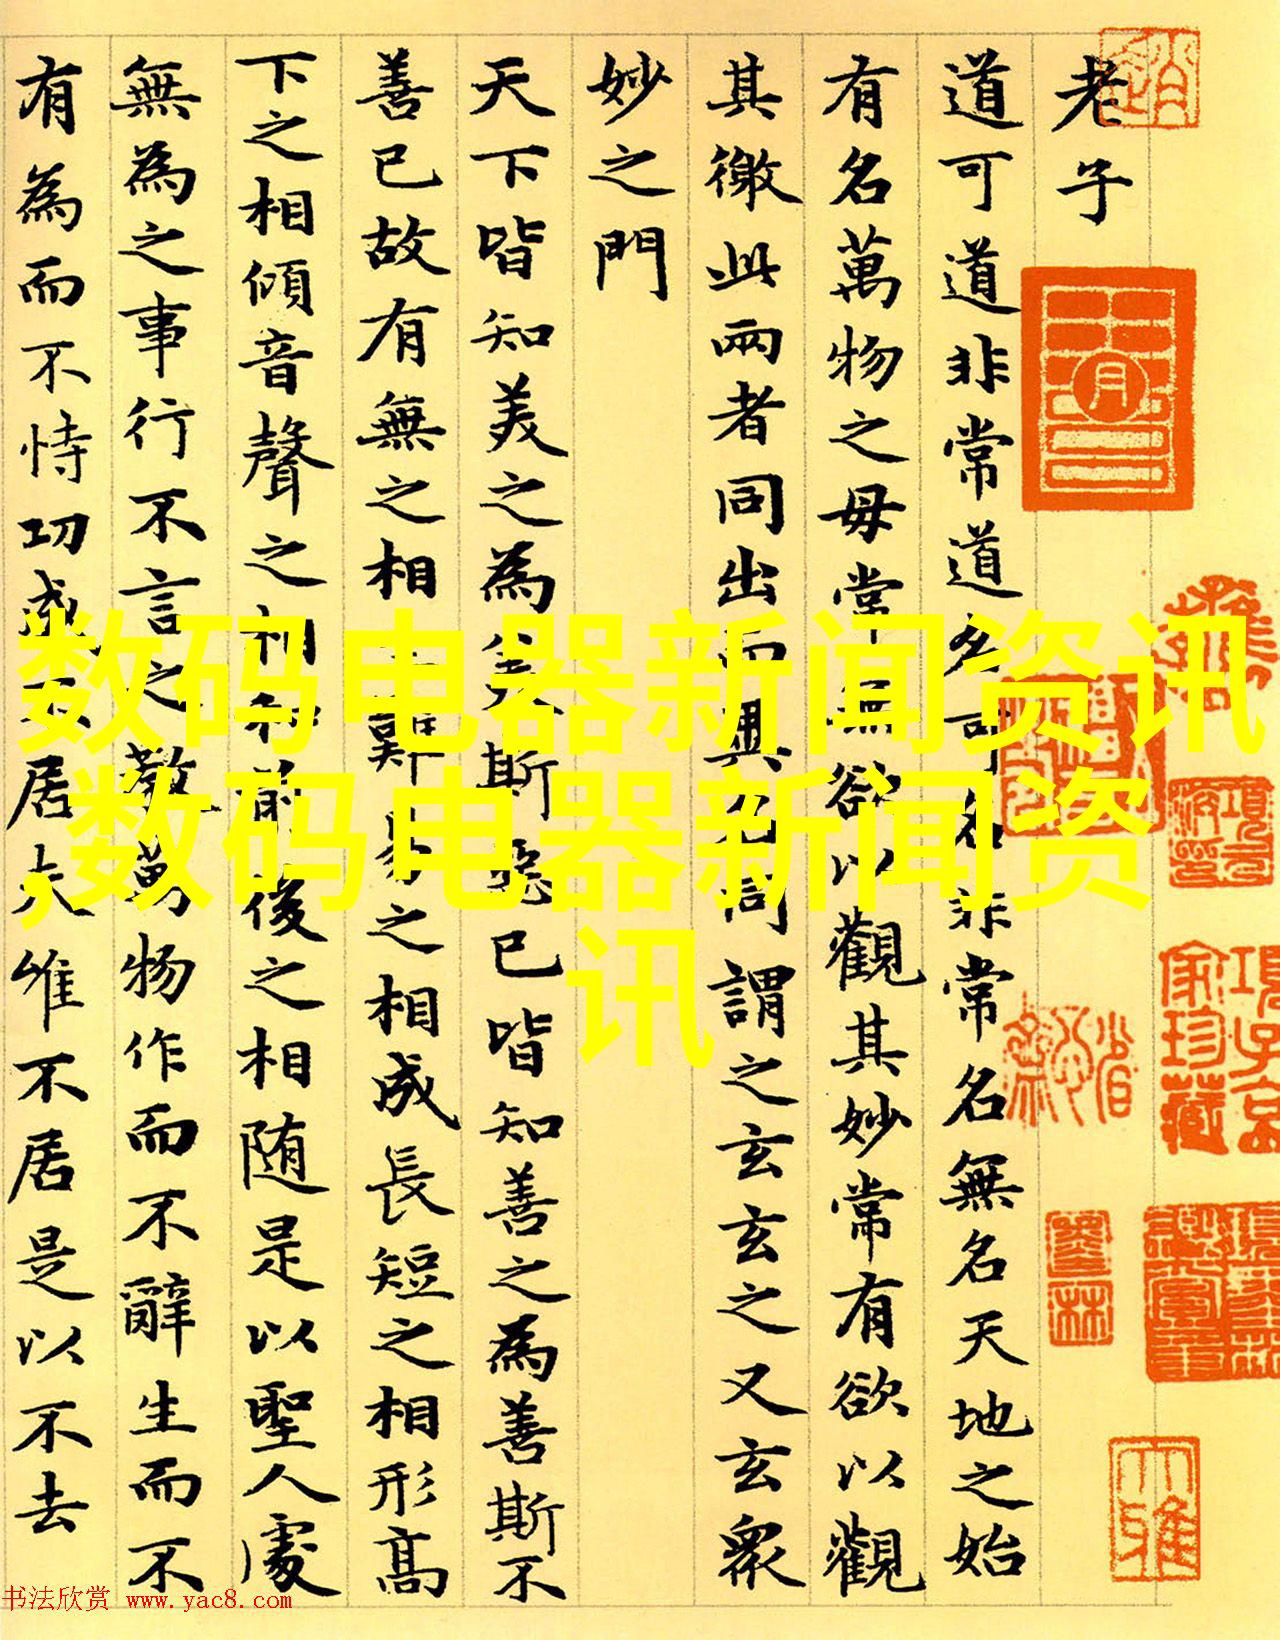 老子
道可道非常道名可名非常名無名天地之始
有名萬物之母常無欲以觀其妙常有欲以觀
其徼此兩者同出而異名同謂之玄玄之又玄衆
妙之門
天下皆知美之為美斯惡已皆知善之為善斯不
善已故有無之相難易之相成長短之相形高
下之相傾音聲之相和前後之相随是以聖人處
無為之事行不言之教萬物作而不辭生而不
有為而不恃功成不居夫唯不居是以不去
数码电器新闻资讯
,数码电器新闻资
讯
項子京
家珍藏
大雅
书法欣赏 www.yac8.com